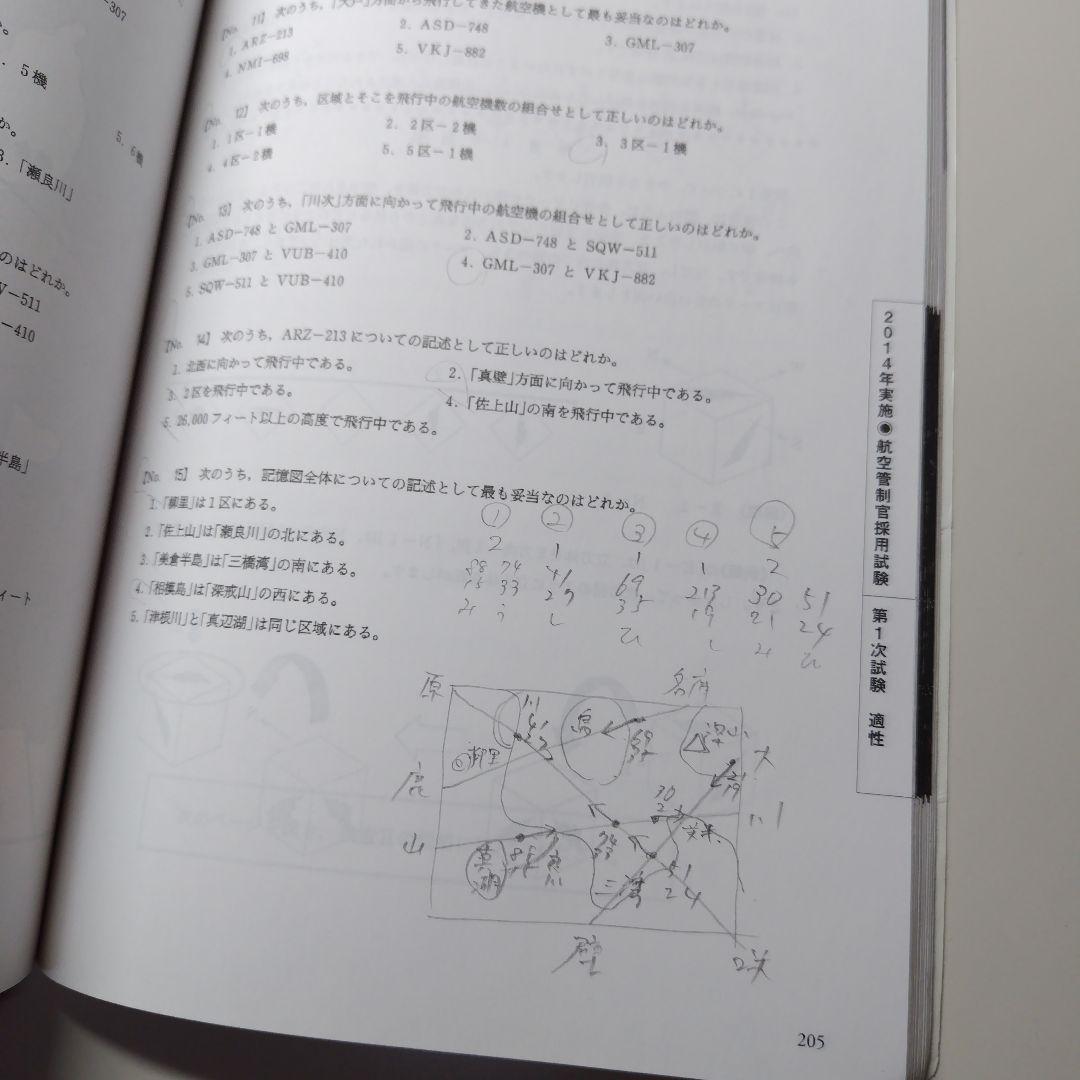 307
か。
． 5機
か。
5．6機
3．「瀬良川」
のはどれか。
V－511
－410
半島」
ィート
【No. 11】 次のうち，「大戸」方面から飛行してきた航空機として最も妥当なのはどれか。
1．ARZ－213
2．ASD－748
3．GML－307
4．NMI－698
5．VKJ－882
【No. 12】 次のうち，区域とそこを飛行中の航空機数の組合せとして正しいのはどれか。
1．1区－1機
2．2区－2機
3．3区－1機
4．4区－2機
5．5区－1機
【No. 13】 次のうち，「川次」方面に向かって飛行中の航空機の組合せとして正しいのはどれか。
1．ASD－748 と GML－307
2．ASD－748 と SQW－511
3．GML－307 と VUB－410
4．GML－307 と VKJ－882
5．SQW－511 と VUB－410
【No. 14】 次のうち，ARZ－213についての記述として正しいのはどれか。
1．北西に向かって飛行中である。
2．「真壁」方面に向かって飛行中である。
3．2区を飛行中である。
4．「佐上山」の南を飛行中である。
5．26,000フィート以上の高度で飛行中である。
【No. 15】 次のうち，記憶図全体についての記述として最も妥当なのはどれか。
1．「柳里」は1区にある。
2．「佐上山」は「瀬良川」の北にある。
3．「美倉半島」は「三橋湾」の南にある。
4．「相模島」は「深戒山」の西にある。
5．「津根川」と「真辺湖」は同じ区域にある。
① ② ③ ④ ⑤
2 1 1 1 2
88 74 41 69 213 30 51
15 33 27 35 19 21 24
原
島
69
35
柳里
大
鹿
21
19
30
山
三湾
51
24
壁
2014年実施●航空管制官採用試験
第1次試験
適性
205